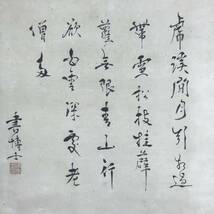 虎溪閒月引相過
帶雪松枝挂薜
蘿無限青山行
欲尽白雲深處老
僧多